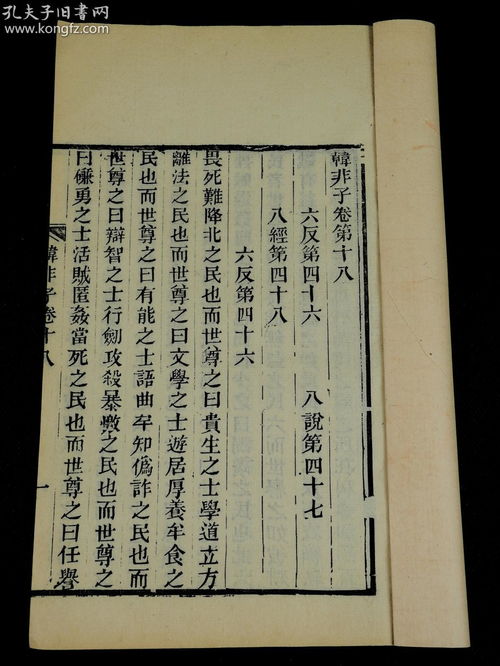 孔夫子旧书网
www.kongfz.com
韓非子卷第十八
六反第四十六　八說第四十七
八經第四十八
六反第四十六
畏死難降北之民也而世尊之曰貴生之士學道立方
離法之民也而世尊之曰文學之士遊居厚養牟食之
民也而世尊之曰有能之士語曲牟知僞詐之民也而
世尊之曰辯智之士行劍攻殺暴憿之民也而世尊之
曰磏勇之士活賊匿姦當死之民也而世尊之曰任譽
韓非子卷十八　一